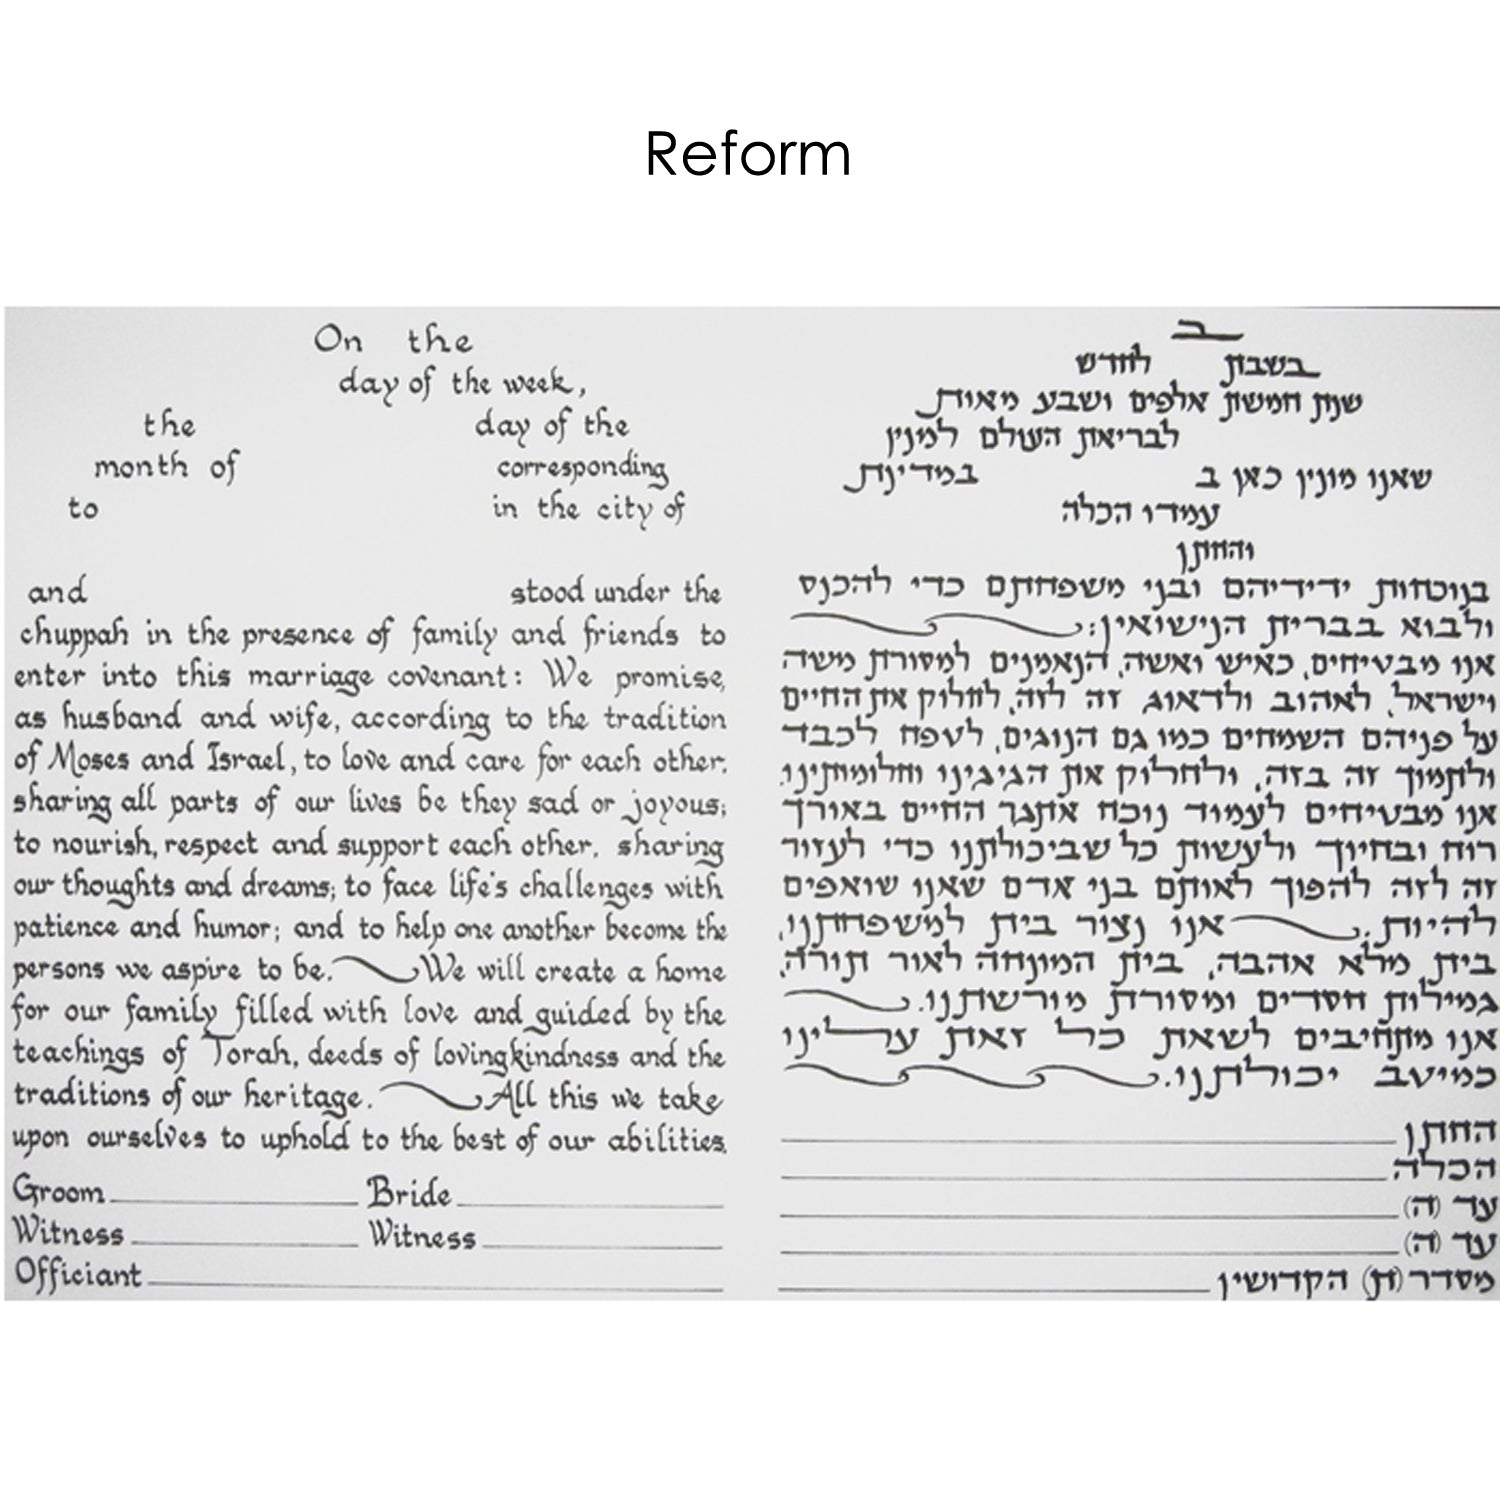 Reform
On the
day of the week,
the day of the
month of corresponding
to in the city of
and stood under the
chuppah in the presence of family and friends to
enter into this marriage covenant: We promise,
as husband and wife, according to the tradition
of Moses and Israel, to love and care for each other,
sharing all parts of our lives be they sad or joyous;
to nourish, respect and support each other, sharing
our thoughts and dreams; to face life's challenges with
patience and humor; and to help one another become the
persons we aspire to be. We will create a home
for our family filled with love and guided by the
teachings of Torah, deeds of lovingkindness and the
traditions of our heritage. All this we take
upon ourselves to uphold to the best of our abilities.
Groom Bride
Witness Witness
Officiant
ב
בשבת לחדש
שנת חמשת אלפים ושבע מאות
לבריאת העולם למנין
שאנו מונין כאן ב במדינת
עמדו הכלה
והחתן
בנוכחות ידידיהם ובני משפחתם כדי להכנס
ולבוא בברית הנישואין:
אנו מבטיחים, כאיש ואשה, הנאמנים למסורת משה
וישראל, לאהוב ולדאוג זה לזה, לחלוק את החיים
על פניהם השמחים כמו גם הנוגים, לטפח לכבד
ולתמוך זה בזה, ולחלוק את הגיגינו וחלומותינו.
אנו מבטיחים לעמוד נוכח אתגר החיים באורך
רוח ובחיוך ולעשות כל שביכולתנו כדי לעזור
זה לזה להפוך לאותם בני אדם שאנו שואפים
להיות. אנו נצור בית למשפחתנו,
בית מלא אהבה, בית המונחה לאור תורה,
גמילות חסדים ומסורת מורשתנו.
אנו מתחיבים לשאת כל זאת עלינו
כמיטב יכולתנו.
החתן
הכלה
עד (ה)
עד (ה)
מסדר(ת) הקדושין